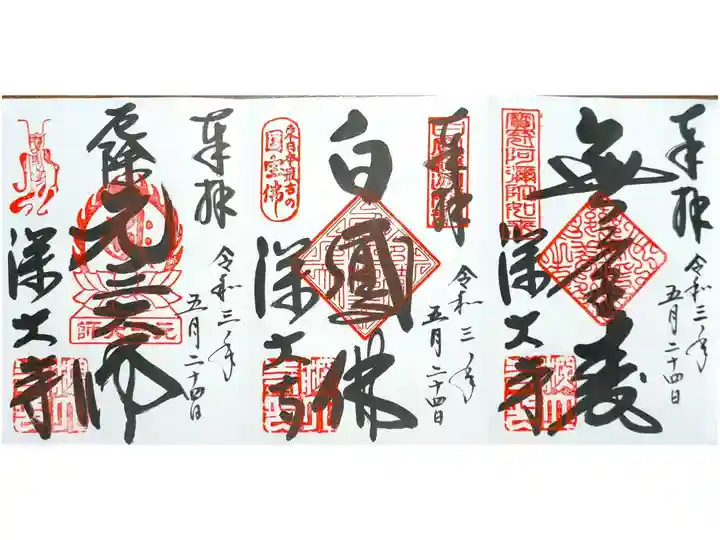 奉拝
令和三年
五月二十四日
無量壽
寶冠阿彌陀如来
深大寺
奉拝
令和三年
五月二十四日
白鳳佛
東日本最古の
国宝佛
深大寺
奉拝
令和三年
五月二十四日
厄除
元三大師
深大寺